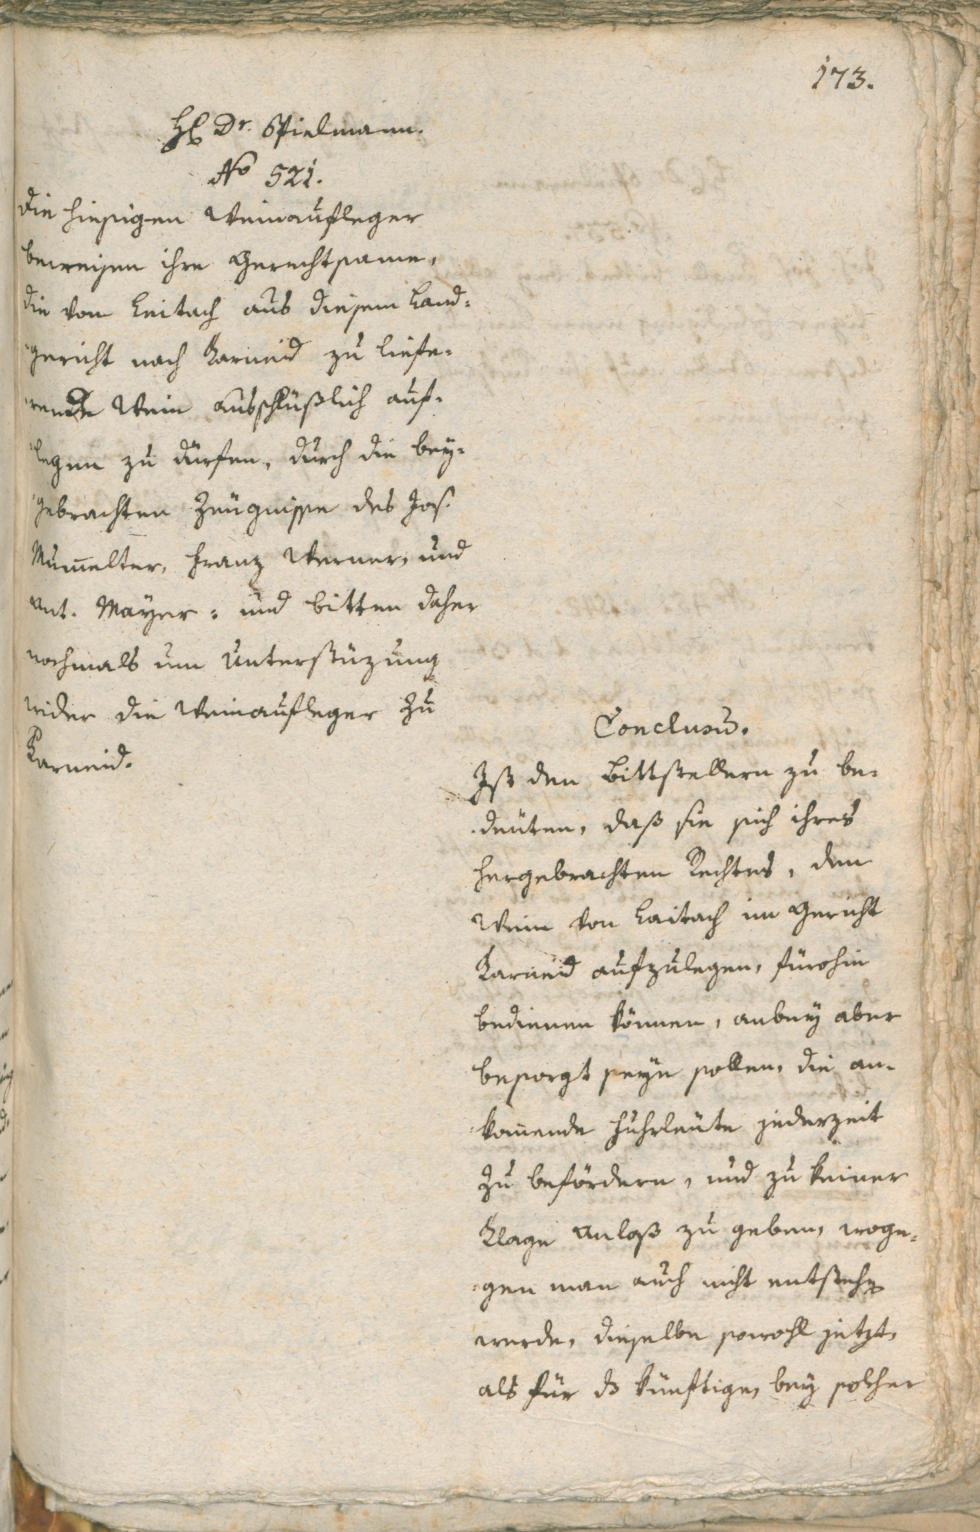 173.
H. Dr. Spielmann.
No 521.
Die hiesigen Weinaufleger
beweisen ihre Gerechtsame,
die von Leitach aus diesem Land-
gericht nach Karneid zu liefe-
rende Wein ausschlüßlich auf-
legen zu dürfen, durch die bey-
gebrachten Zeugnisse des Jos.
Mum̄elter, Franz Werner, und
Ant. Mayer: und bitten daher
nochmals um Unterstüzung
wider die Weinaufleger zu
Karneid.
Conclusū.
Ist den Bittstellern zu be-
deuten, daß sie sich ihres
hergebrachten Rechtes, den
Wein von Laitach im Gericht
Karneid aufzulegen, fürohin
bedienen können, anbey aber
besorgt seyn sollen, die an-
kom̄ende Fuhrleute jederzeit
zu befördern, und zu keiner
Klage Anlaß zu geben, woge-
gen man auch nicht entstehen
werde, dieselbe sowohl jetzt,
als für das künftige, bey solcher